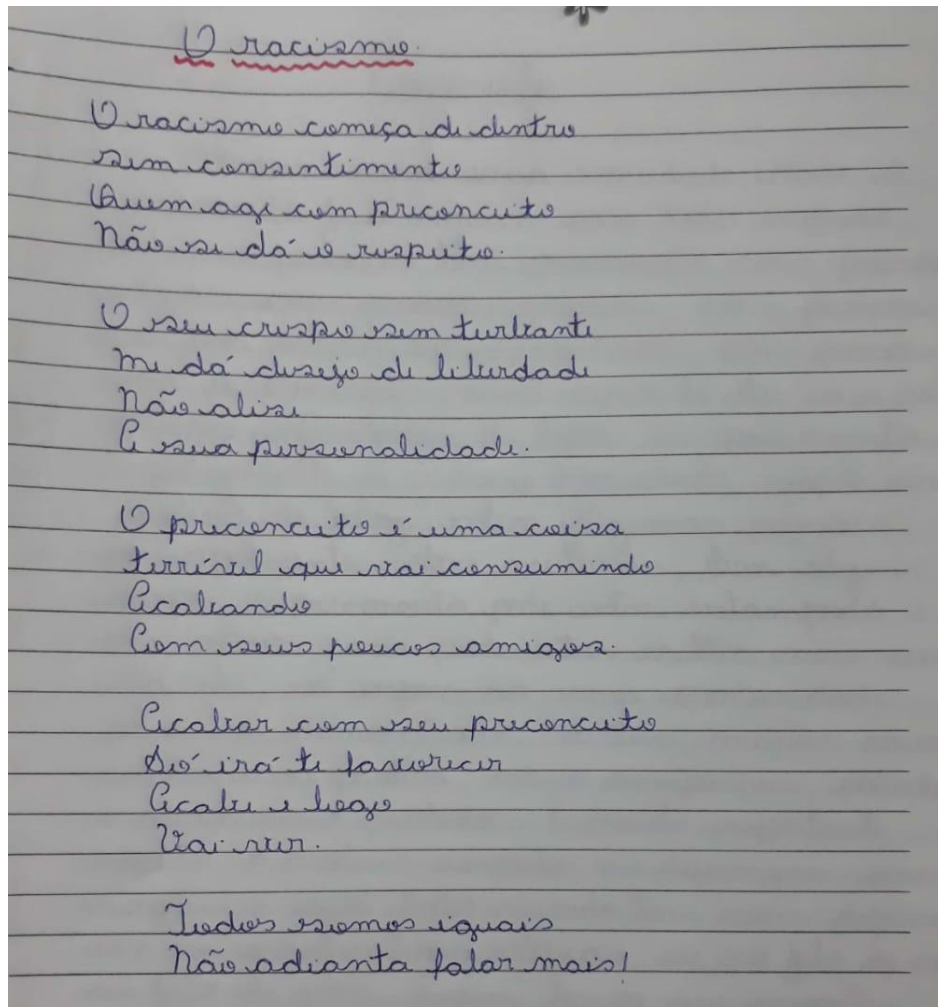 O racismo.
O racismo começa de dentro
sem consentimento
Quem age com preconceito
Não se dá o respeito.
O seu crespo sem turbante
Me dá desejo de liberdade
Não alise
A sua personalidade.
O preconceito é uma coisa
terrível que vai consumindo
Acabando
Com seus poucos amigos.
Acabar com seu preconceito
Só irá te favorecer
Acabe e logo
Vai ver.
Todos somos iguais
Não adianta falar mais!